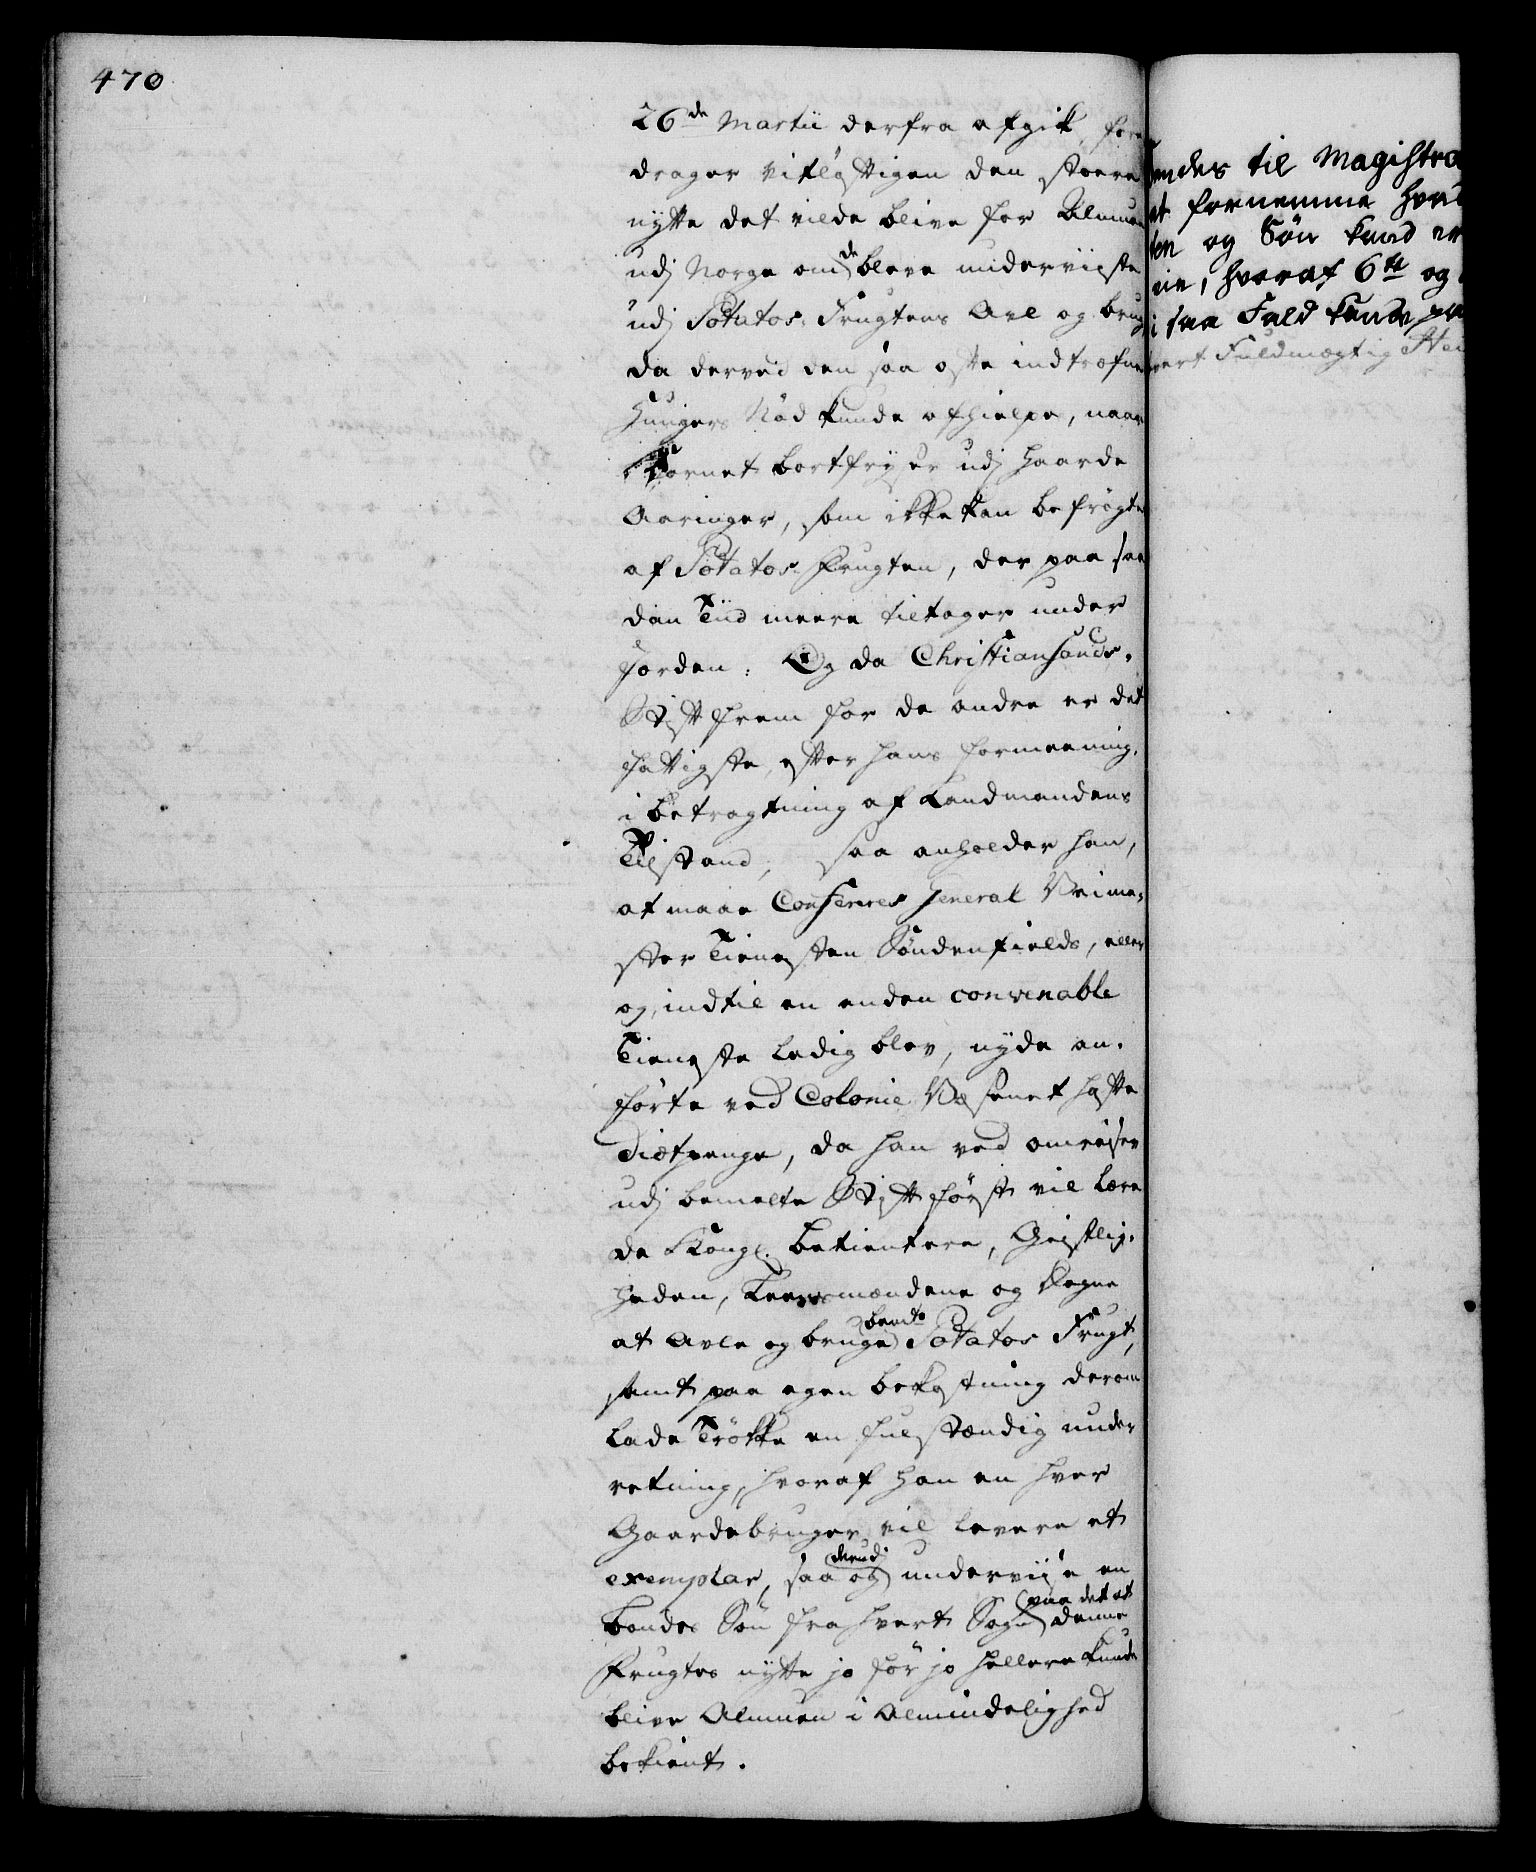 470
26de Martii derfra afgik, fore
drager vitløftigen den stoere
nytte det vilde blive for Almuen
udj Norge om de bleve underviiste
udj Potatos-Frugtens Avl og brug
da derved den saa ofte indtræfne
Hungers Nød kunde afhielpe, naar
Kornet bortfryser udj haarde
Aaringer, som ikke kan befrøgtes
af Potatos-Frugten, der paa saa
dan Tiid meere tiltager under
Jorden: Og da Christiansands-
Stift frem for de andre er det
fattigste, efter hans formeening,
i betragtning af Landmandens
Tilstand, saa anholder han,
at maae Conferres General Veime-
ster Tienesten Søndenfields, eller
og, indtil en anden convenable
Tieneste ledig blev, nyde an-
førte ved Colonie Væsenet hafte
Diætpenge, da han ved omreiser
udj bemelte Stift først vil lære
de Kongl. betientere, Geistlig-
heden, Leensmændene og Degne
at avle og bruge bemte Potatos Frugt,
samt paa egen bekostning derom
lade Trökke en fulstændig under
retning, hvoraf han en hver
Gaardebruger vil levere et
exemplar, saa og derudj underviise en
bondes Søn fra hvert Sogn paa det at denne
Frugtes nytte jo før jo hellere kunde
blive Almuen i Almindelighed
bekient.
endes til Magistra
at fornemme hvad
den og Søn kand er
, hvoraf 6te og
i saa Fald kunde
vert Fuldmægtig